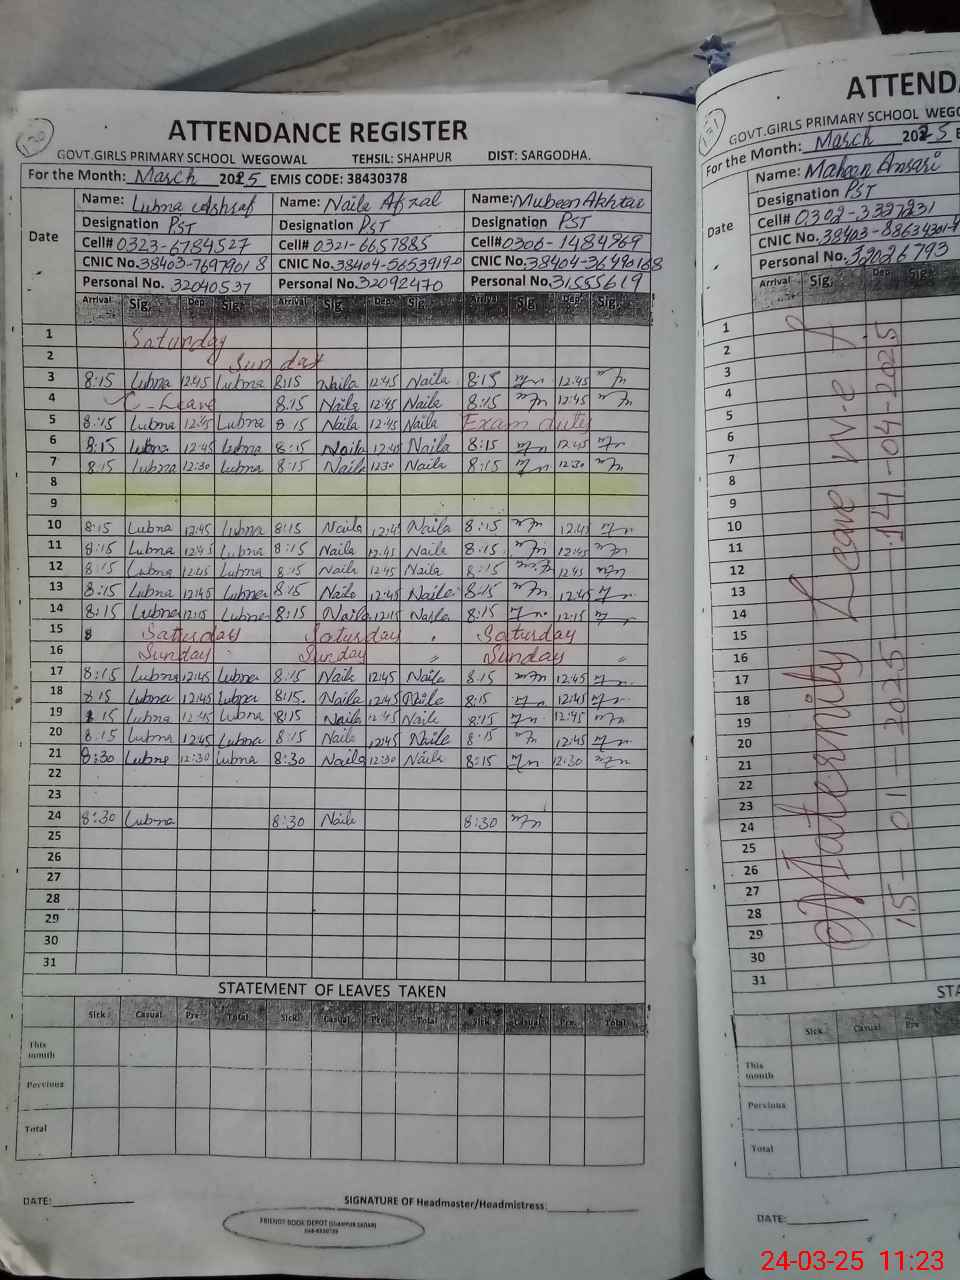 120
ATTENDANCE REGISTER
GOVT.GIRLS PRIMARY SCHOOL WEGOWAL TEHSIL: SHAHPUR DIST: SARGODHA.
For the Month: March 2025 EMIS CODE: 38430378
Date
Name: Lubna Ashraf Name: Naila Afzal Name: Mubeen Akhtar
Designation PST Designation PST Designation PST
Cell# 0323-6784527 Cell# 0321-6657885 Cell# 0306-1484969
CNIC No. 38403-7697901 8 CNIC No. 38404-5653919-0 CNIC No. 38404-3649016 8
Personal No. 32040537 Personal No. 32092470 Personal No. 31555619
Arrival Sig. Dep. Sig. Arrival Sig. Dep. Sig. Arrival Sig. Dep. Sig.
1 Saturday
2 Sunday
3 8:15 Lubna 12:45 Lubna 8:15 Naila 12:45 Naila 8:15 12:45
4 C-Leave 8:15 Naila 12:45 Naila 8:15 12:45
5 8:15 Lubna 12:45 Lubna 8:15 Naila 12:45 Naila Exam duty
6 8:15 Lubna 12:45 Lubna 8:15 Naila 12:45 Naila 8:15 12:45
7 8:15 Lubna 12:30 Lubna 8:15 Naila 12:30 Naila 8:15 12:30
8
9
10 8:15 Lubna 12:45 Lubna 8:15 Naila 12:45 Naila 8:15 12:45
11 8:15 Lubna 12:45 Lubna 8:15 Naila 12:45 Naila 8:15 12:45
12 8:15 Lubna 12:45 Lubna 8:15 Naila 12:45 Naila 8:15 12:45
13 8:15 Lubna 12:45 Lubna 8:15 Naila 12:45 Naila 8:15 12:45
14 8:15 Lubna 12:15 Lubna 8:15 Naila 12:15 Naila 8:15 12:15
15 8 Saturday Saturday Saturday
16 Sunday Sunday " Sunday "
17 8:15 Lubna 12:45 Lubna 8:15 Naila 12:45 Naila 8:15 12:45
18 8:15 Lubna 12:45 Lubna 8:15 Naila 12:45 Naila 8:15 12:45
19 8:15 Lubna 12:45 Lubna 8:15 Naila 12:45 Naila 8:15 12:45
20 8:15 Lubna 12:45 Lubna 8:15 Naila 12:45 Naila 8:15 12:45
21 8:30 Lubna 12:30 Lubna 8:30 Naila 12:30 Naila 8:15 12:30
22
23
24 8:30 Lubna 8:30 Naila 8:30
25
26
27
28
29
30
31
STATEMENT OF LEAVES TAKEN
Sick Casual Prv Total Sick Casual Prv Total Sick Casual Prv Total
This month
Pervious
Total
DATE: SIGNATURE OF Headmaster/Headmistress:
FRIENDS BOOK DEPOT (SHAHPUR SADAR)
121
ATTENDA
GOVT.GIRLS PRIMARY SCHOOL WEGO
For the Month: March 2025 E
Date
Name: Maheen Ansari
Designation PST
Cell# 0302-3327231
CNIC No. 38403-8863430
Personal No. 32026793
Arrival Sig. Dep. Sig.
1
2
3
4
5
6
7
8
9
10
11
12
13
14
15
16
17
18
19
20
21
22
23
24
25
26
27
28
29
30
31
Maternity Leave w.e.f
15-01-2025 14-04-2025
STA
Sick Casual Prv
This month
Pervious
Total
DATE:
24-03-25 11:23